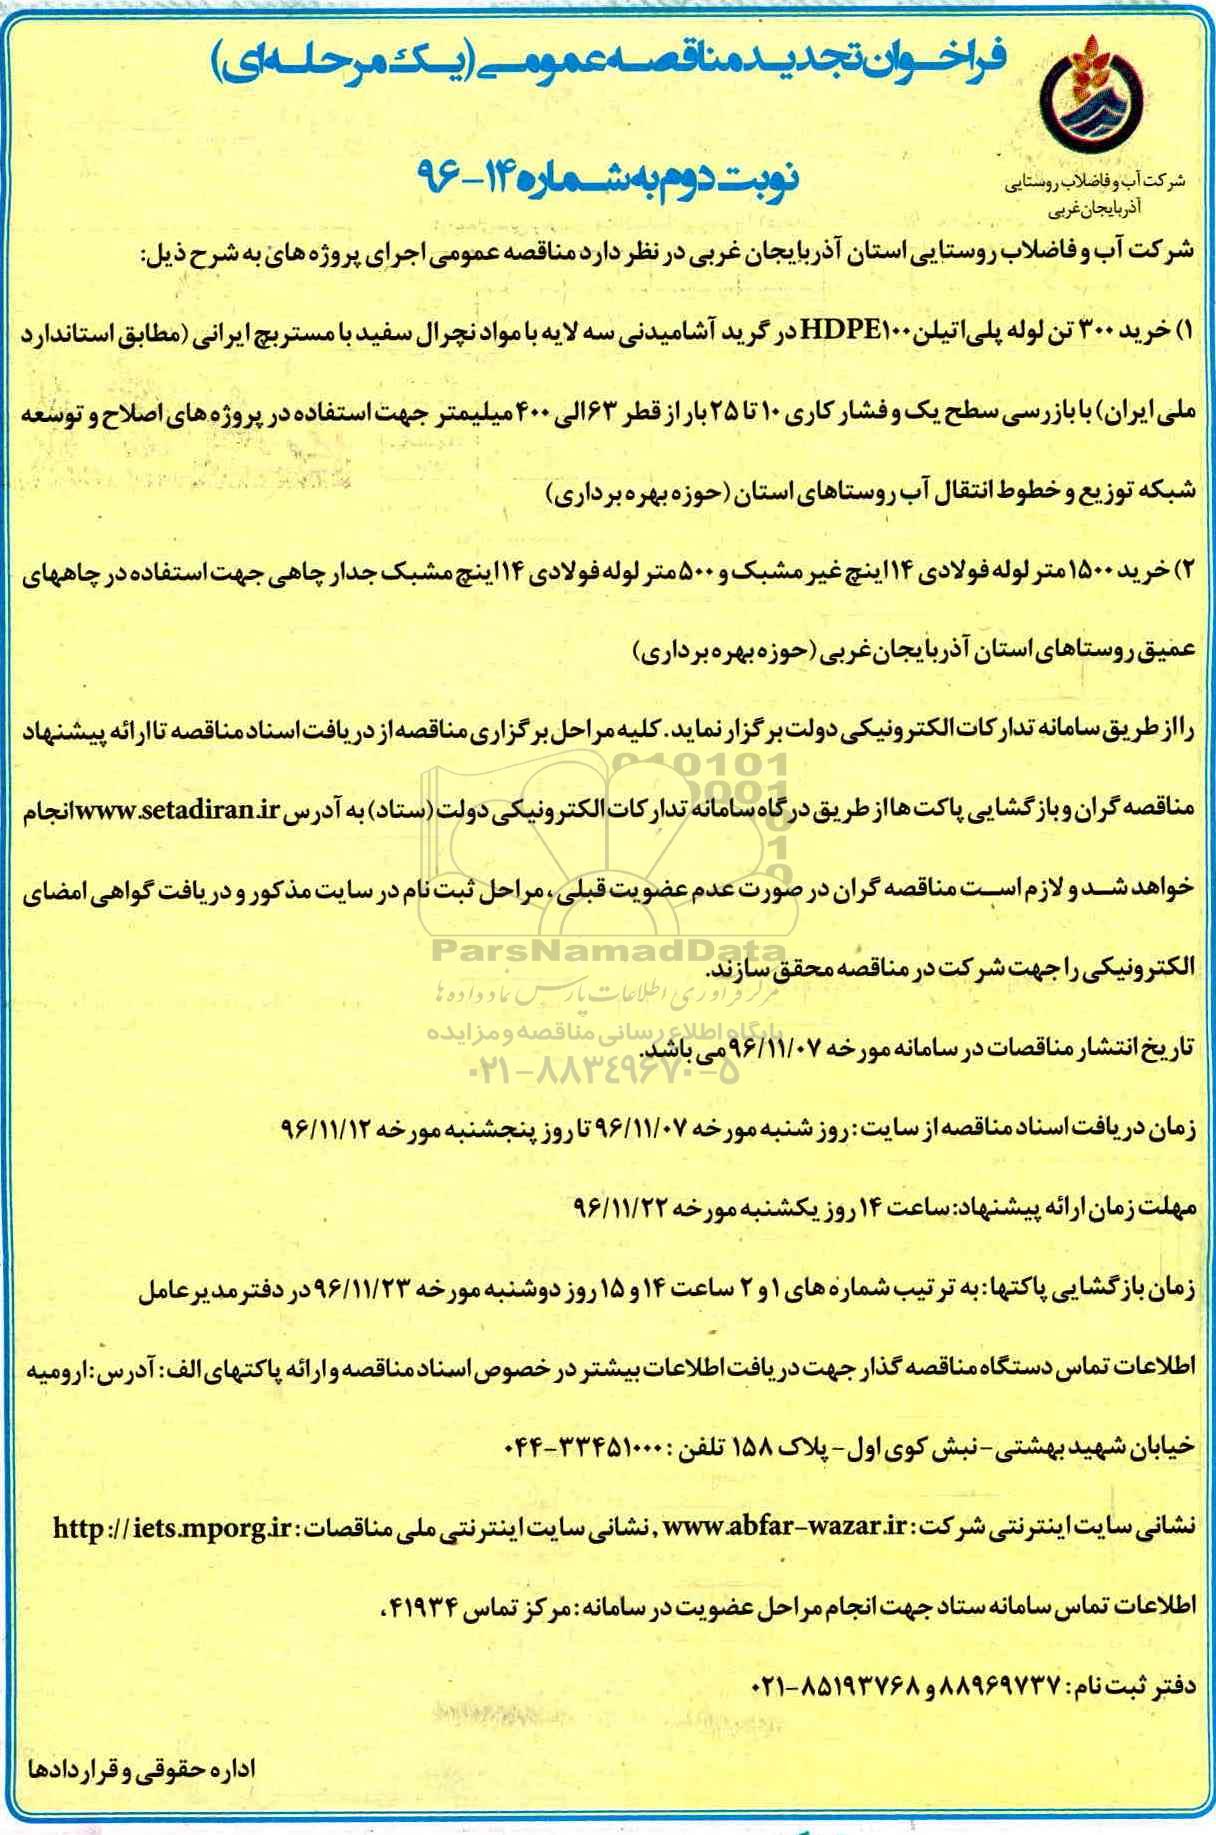 فراخوان تجدید مناقصه عمومی (یک مرحله‌ای)
نوبت دوم به شماره ۱۴-۹۶
شرکت آب و فاضلاب روستایی
آذربایجان غربی
شرکت آب و فاضلاب روستایی استان آذربایجان غربی در نظر دارد مناقصه عمومی اجرای پروژه های به شرح ذیل:
۱) خرید ۳۰۰ تن لوله پلی اتیلن HDPE۱۰۰ در گرید آشامیدنی سه لایه با مواد نچرال سفید با مستربچ ایرانی (مطابق استاندارد
ملی ایران) با بازرسی سطح یک و فشار کاری ۱۰ تا ۲۵ بار از قطر ۶۳ الی ۴۰۰ میلیمتر جهت استفاده در پروژه های اصلاح و توسعه
شبکه توزیع و خطوط انتقال آب روستاهای استان (حوزه بهره برداری)
۲) خرید ۱۵۰۰ متر لوله فولادی ۱۴ اینچ غیر مشبک و ۵۰۰ متر لوله فولادی ۱۴ اینچ مشبک جدار چاهی جهت استفاده در چاههای
عمیق روستاهای استان آذربایجان غربی (حوزه بهره برداری)
را از طریق سامانه تدارکات الکترونیکی دولت برگزار نماید. کلیه مراحل برگزاری مناقصه از دریافت اسناد مناقصه تا ارائه پیشنهاد
مناقصه گران و بازگشایی پاکت ها از طریق درگاه سامانه تدارکات الکترونیکی دولت (ستاد) به آدرس www.setadiran.ir انجام
خواهد شد و لازم است مناقصه گران در صورت عدم عضویت قبلی، مراحل ثبت نام در سایت مذکور و دریافت گواهی امضای
الکترونیکی را جهت شرکت در مناقصه محقق سازند.
تاریخ انتشار مناقصات در سامانه مورخه ۹۶/۱۱/۰۷ می باشد.
زمان دریافت اسناد مناقصه از سایت: روز شنبه مورخه ۹۶/۱۱/۰۷ تا روز پنجشنبه مورخه ۹۶/۱۱/۱۲
مهلت زمان ارائه پیشنهاد: ساعت ۱۴ روز یکشنبه مورخه ۹۶/۱۱/۲۲
زمان بازگشایی پاکتها: به ترتیب شماره های ۱ و ۲ ساعت ۱۴ و ۱۵ روز دوشنبه مورخه ۹۶/۱۱/۲۳ در دفتر مدیرعامل
اطلاعات تماس دستگاه مناقصه گذار جهت دریافت اطلاعات بیشتر در خصوص اسناد مناقصه و ارائه پاکتهای الف: آدرس: ارومیه
خیابان شهید بهشتی - نبش کوی اول - پلاک ۱۵۸ تلفن: ۳۳۴۵۱۰۰۰-۰۴۴
نشانی سایت اینترنتی شرکت: www.abfar-wazar.ir , نشانی سایت اینترنتی ملی مناقصات: http://iets.mporg.ir
اطلاعات تماس سامانه ستاد جهت انجام مراحل عضویت در سامانه: مرکز تماس ۴۱۹۳۴،
دفتر ثبت نام: ۸۸۹۶۹۷۳۷ و ۸۵۱۹۳۷۶۸-۰۲۱
اداره حقوقی و قراردادها
ParsNamadData
مرکز فرآوری اطلاعات پارس نماد داده ها
پایگاه اطلاع رسانی مناقصه و مزایده
۰۲۱-۸۸۳۴۹۶۷۰-۵